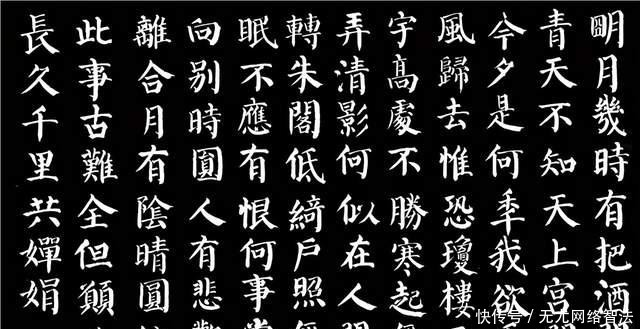 明月幾時有把酒
青天不知天上宮
今夕是何年我欲
風歸去惟恐瓊樓
宇高處不勝寒起
弄清影何似在人
轉朱閣低綺戶照
眠不應有恨何事
向别時圓人有悲
離合月有陰晴圓
此事古難全但願
長久千里共嬋娟
快传号 / 无尤网络智法